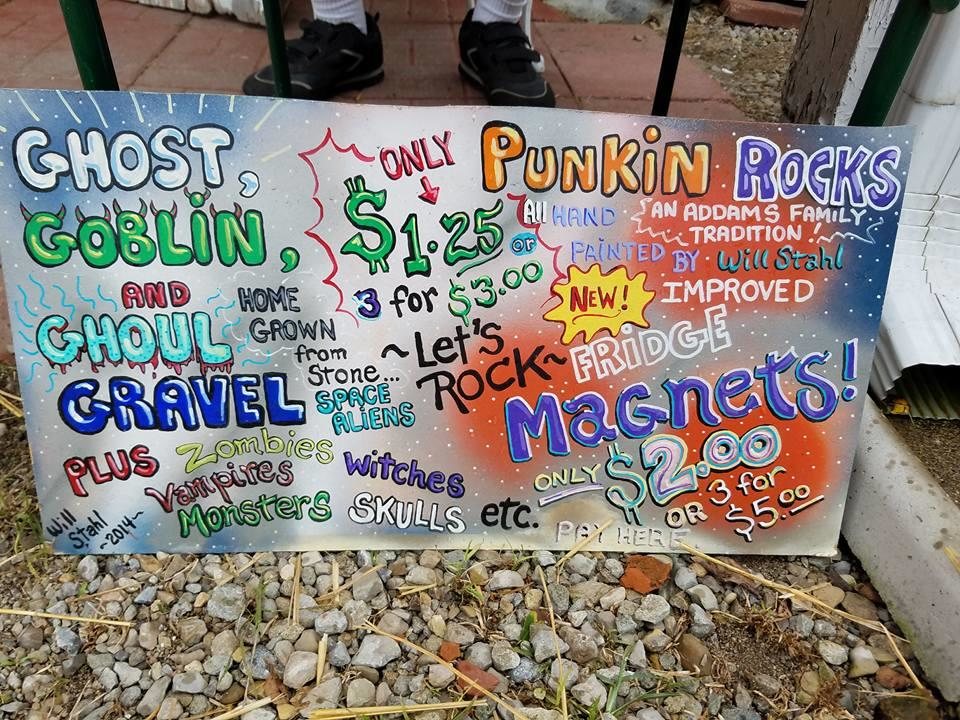 GHOST,
GOBLIN,
AND
GHOUL
GRAVEL
HOME
GROWN
from
Stone...
SPACE
ALIENS
PLUS
Zombies
Vampires
Monsters
Witches
SKULLS
etc.
Will
Stahl
-2014-
ONLY
$1.25
or
3 for $3.00
~Let's
Rock~
PUNKIN ROCKS
All HAND
PAINTED BY Will Stahl
AN ADDAMS FAMILY
TRADITION!
NEW! IMPROVED
FRIDGE
MAGNETS!
ONLY $2.00
OR 3 for
$5.00
PAY HERE